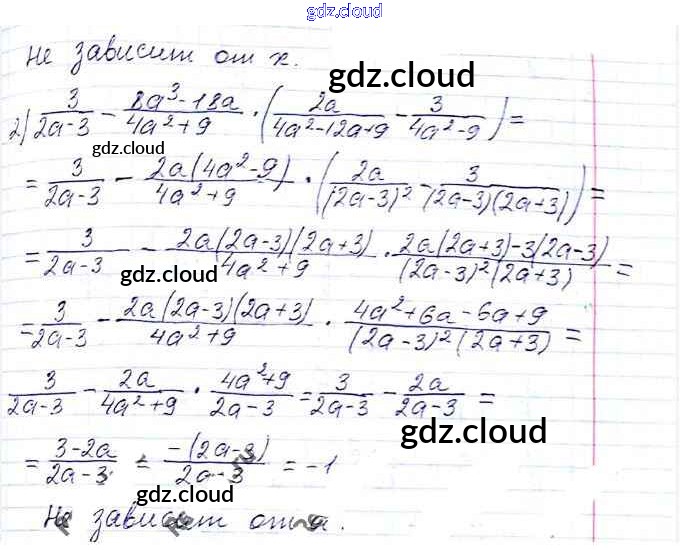 gdz.cloud
gdz.cloud
не зависит от x.
gdz.cloud
2) 3/(2a-3) - (8a³-18a)/(4a²+9) · (2a/(4a²-12a+9) - 3/(4a²-9)) =
gdz.cloud
= 3/(2a-3) - 2a(4a²-9)/(4a²+9) · (2a/(2a-3)² - 3/(2a-3)(2a+3)) =
= 3/(2a-3) - 2a(2a-3)(2a+3)/(4a²+9) · (2a(2a+3)-3(2a-3))/((2a-3)²(2a+3)) =
gdz.cloud
gdz.cloud
= 3/(2a-3) - 2a(2a-3)(2a+3)/(4a²+9) · (4a²+6a-6a+9)/((2a-3)²(2a+3)) =
3/(2a-3) - 2a/(4a²+9) · (4a²+9)/(2a-3) = 3/(2a-3) - 2a/(2a-3) =
gdz.cloud
= (3-2a)/(2a-3) = -(2a-3)/(2a-3) = -1
gdz.cloud
Не зависит от a.